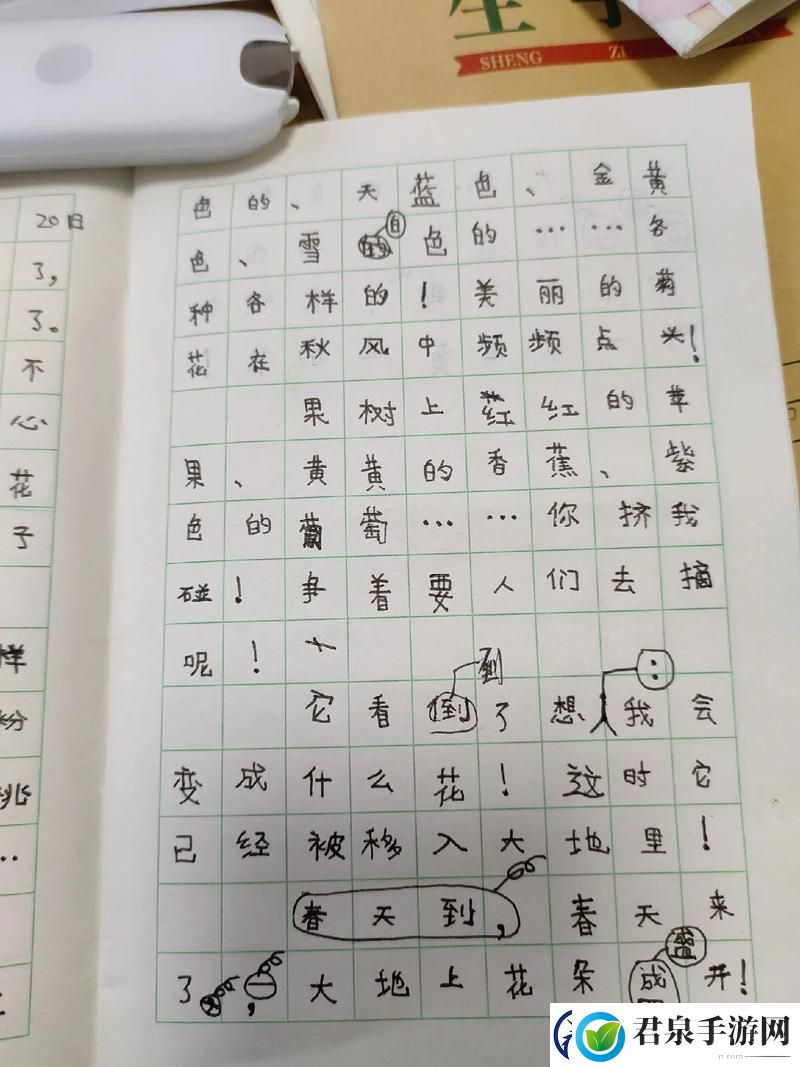 生字
SHENG ZI
20日
了,
了。
不
心
花
子
样
粉
桃
..
色的、天蓝色、金黄
色、雪的白色的……各
种各样的!美丽的菊
花在秋风中频频点头!
果树上红红的苹
果、黄黄的香蕉、紫
色的葡萄……你挤我
碰!争着要人们去摘
呢!
它看倒到了想:我会
变成什么花!这时它
已经被移入大地里!
春天到,春天来
了,大地上花朵成盛开!
君泉手游网